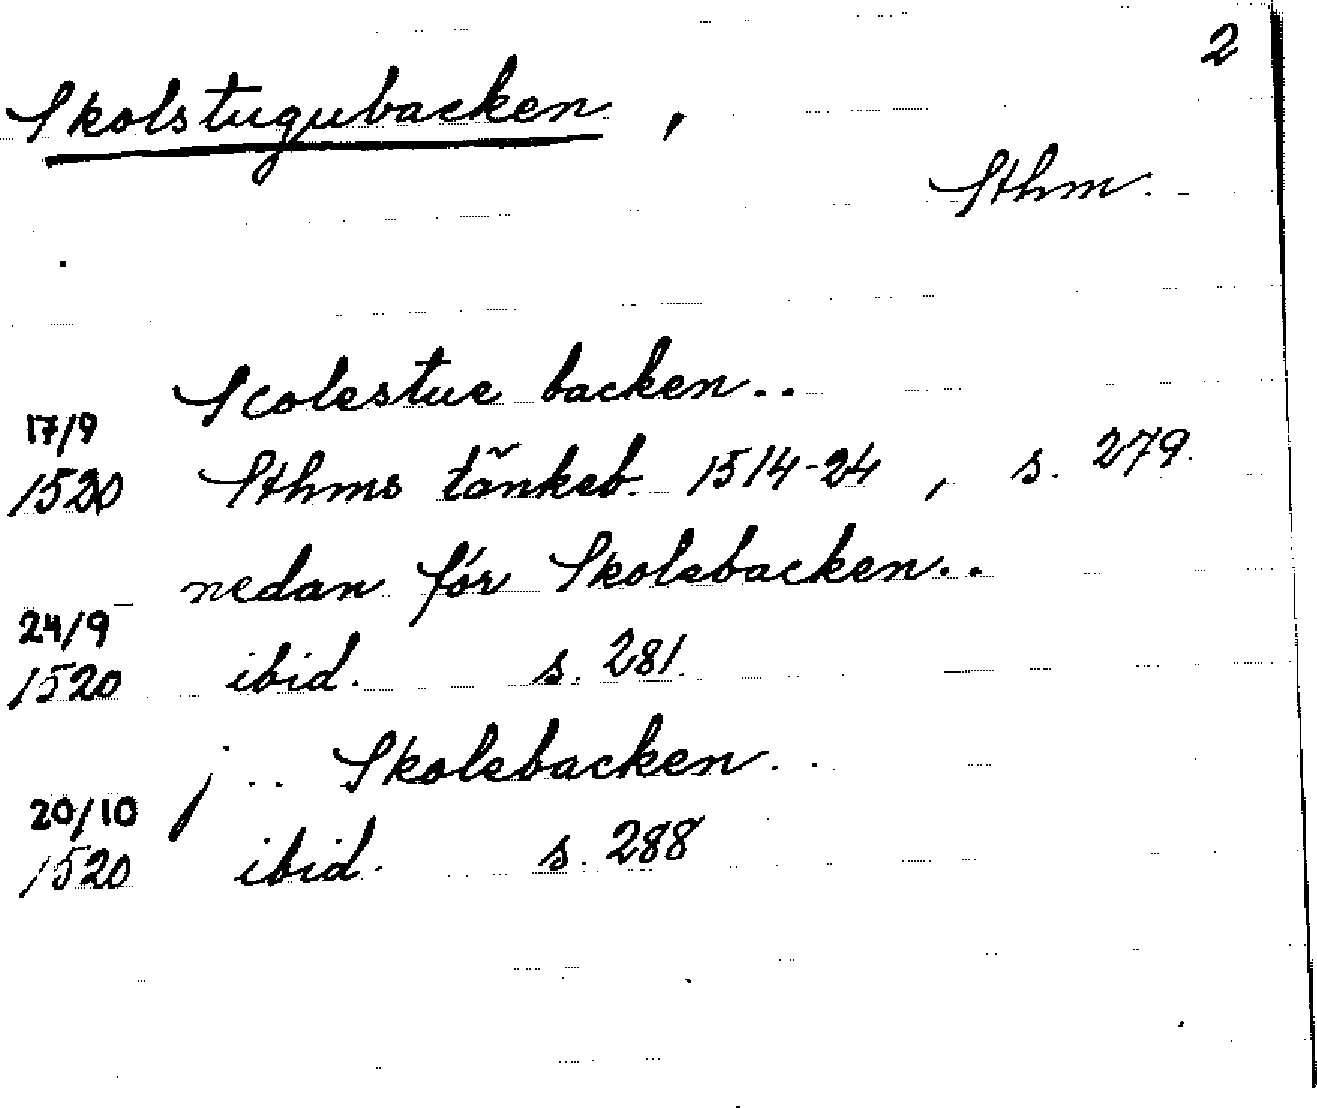 2
Skolstugubacken,
Sthm.
Scolestue backen..
17/9
1520 Sthms tänkeb. 1514-24, s. 279.
nedan för Skolebacken..
24/9
1520 ibid. s. 281.
j .. Skolebacken..
20/10
1520 ibid. s. 288